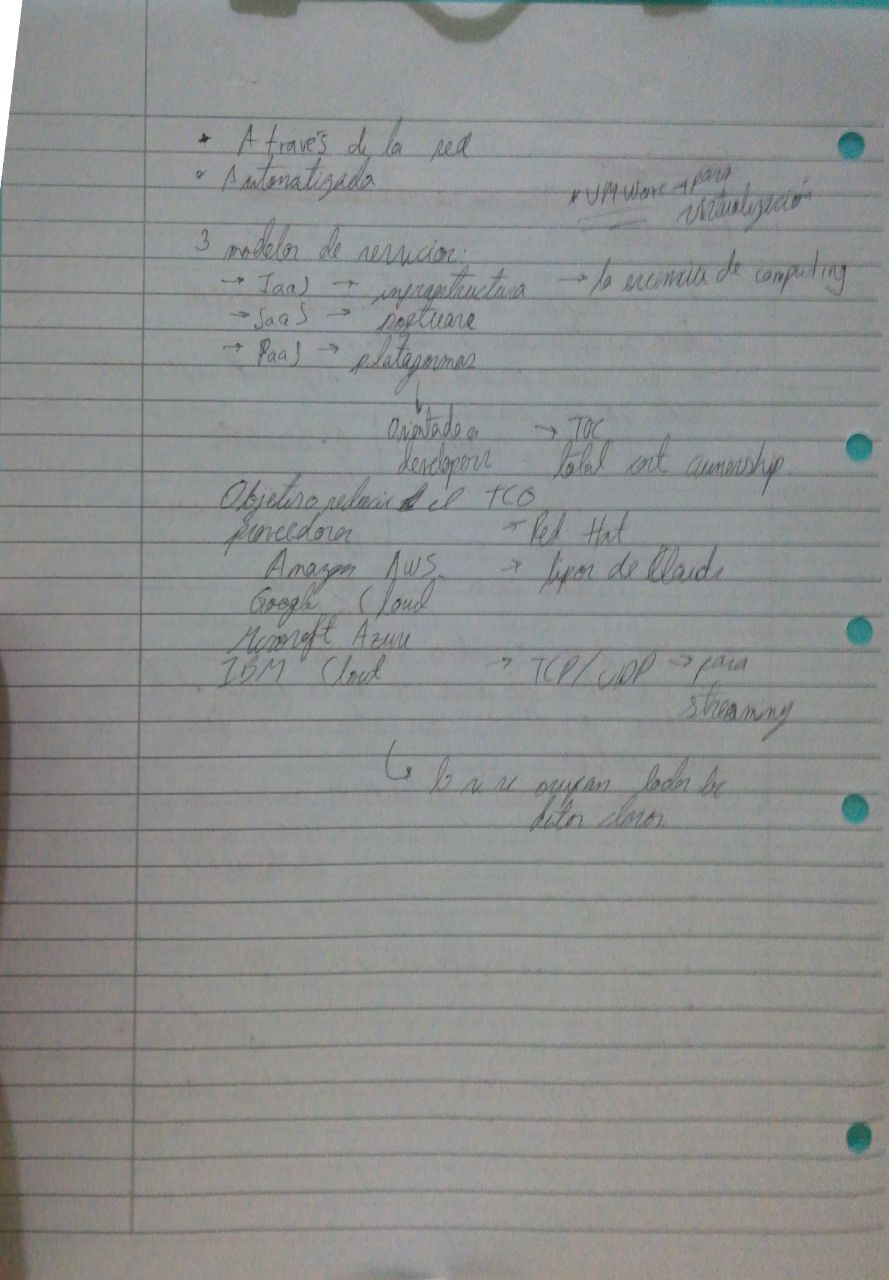 * A través de la red
* Automatizada
* VMWare → para
virtualización
3 modelos de servicios:
→ IaaS → infraestructura → la esencia de computing
→ SaaS → software
→ PaaS → plataformas
↓
Orientado a
developers
→ TOC
total cost ownership.
Objetivo reducir el TCO
proveedores → Red Hat
Amazon AWS → tipos de Clouds
Google Cloud
Microsoft Azure
IBM Cloud → TCP/UDP → para
streaming
↳ se ocupan todos los